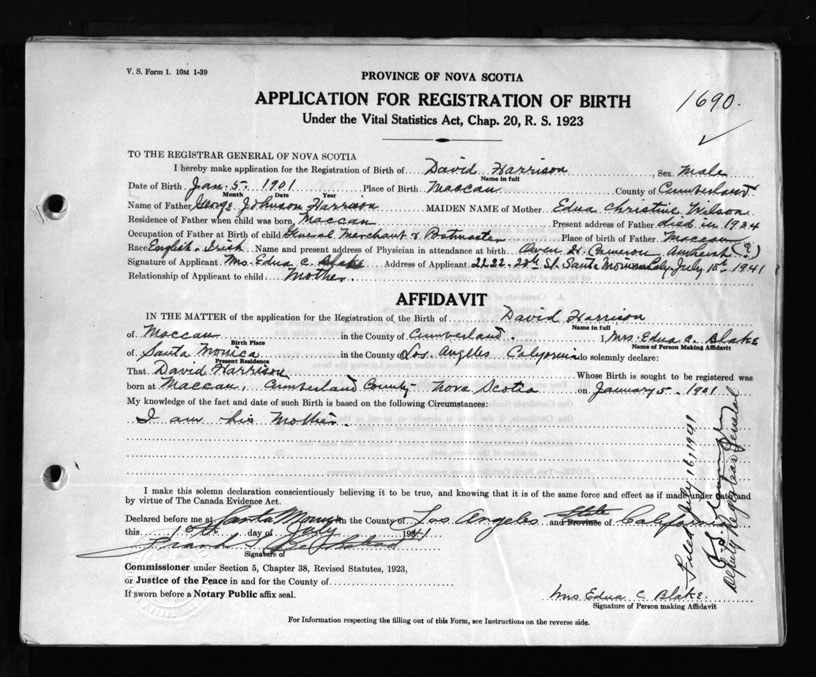 V. S. Form 1. 10M 1-39
PROVINCE OF NOVA SCOTIA
APPLICATION FOR REGISTRATION OF BIRTH
1690.
Under the Vital Statistics Act, Chap. 20, R. S. 1923
TO THE REGISTRAR GENERAL OF NOVA SCOTIA
I hereby make application for the Registration of Birth of David Harrison, Sex Male
Name in full
Date of Birth Jan. 5 - 1901 Place of Birth Maccan County of Cumberland
Month Date Year
Name of Father George Johnson Harrison MAIDEN NAME of Mother Edna Christine Wilson
Residence of Father when child was born, Maccan Present address of Father died in 1934
Occupation of Father at Birth of child General Merchant & Postmaster Place of birth of Father Maccan
Race English - Irish Name and present address of Physician in attendance at birth Cameron Amherst (?)
Signature of Applicant Mrs. Edna C. Blake Address of Applicant 2122 - 20th St. Santa Monica Caly. July 15th 1941
Relationship of Applicant to child Mother
AFFIDAVIT
IN THE MATTER of the application for the Registration of the Birth of David Harrison
Name in full
of Maccan in the County of Cumberland. I, Mrs. Edna C. Blake
Birth Place Name of Person Making Affidavit
of Santa Monica in the County of Los Angeles California do solemnly declare:
Present Residence
That David Harrison Whose Birth is sought to be registered was
born at Maccan, Cumberland County Nova Scotia on January 5 - 1901
My knowledge of the fact and date of such Birth is based on the following Circumstances:
I am his Mother.
I make this solemn declaration conscientiously believing it to be true, and knowing that it is of the same force and effect as if made under oath and
by virtue of The Canada Evidence Act.
Declared before me at Santa Monica in the County of Los Angeles and Province State of California
this day of July 1941
Signature of
Commissioner under Section 5, Chapter 38, Revised Statutes, 1923,
or Justice of the Peace in and for the County of
If sworn before a Notary Public affix seal.
Mrs Edna C Blake.
Signature of Person making Affidavit
For Information respecting the filling out of this Form, see Instructions on the reverse side.
Filed July 16, 1941
Deputy Registrar General